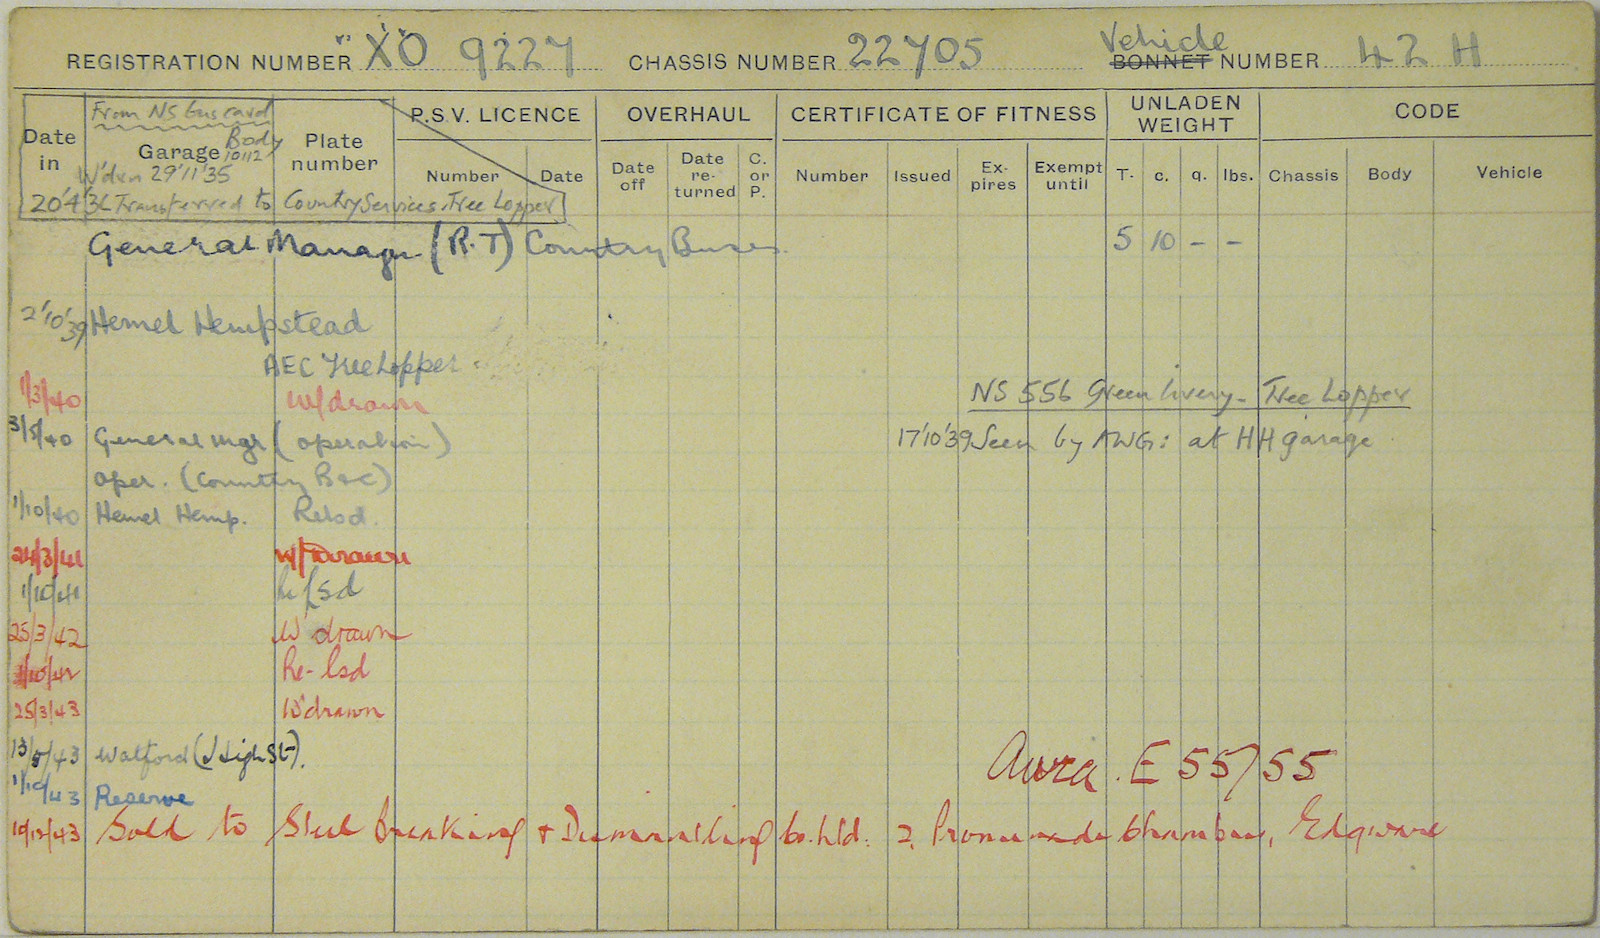 REGISTRATION NUMBER XO 9227 CHASSIS NUMBER 22705 Vehicle BONNET NUMBER 42 H
From NS bus card
Date in Garage Body 10112 Plate number P.S.V. LICENCE OVERHAUL CERTIFICATE OF FITNESS UNLADEN WEIGHT CODE
Number Date Date off Date re-turned C. or P. Number Issued Ex-pires Exempt until T. c. q. lbs. Chassis Body Vehicle
W'dxn 29'11'35
20'4'36 Transferred to Country Services. Tree Lopper
General Manager (R.T) Country Buses. 5 10 - -
2'10'39 Hemel Hempstead
AEC Treelopper
1/3/40 W/drawn NS 556 Green livery - Tree Lopper
3/5/40 General Mgr (operation) 17'10'39 Seen by AWG: at HH garage
oper. (Country B&C)
1/10/40 Hemel Hemp. Relsd.
24/3/41 W/drawn
1/10/41 Re/sd
25/3/42 W'drawn
1/10/42 Re-lsd
25/3/43 W'drawn
13/5/43 Watford (High St). E 55/55
1/10/43 Reserve
10/12/43 Sold to Steel Breaking & Dismantling Co. Ltd. 2, Promenade Chambers, Edgware